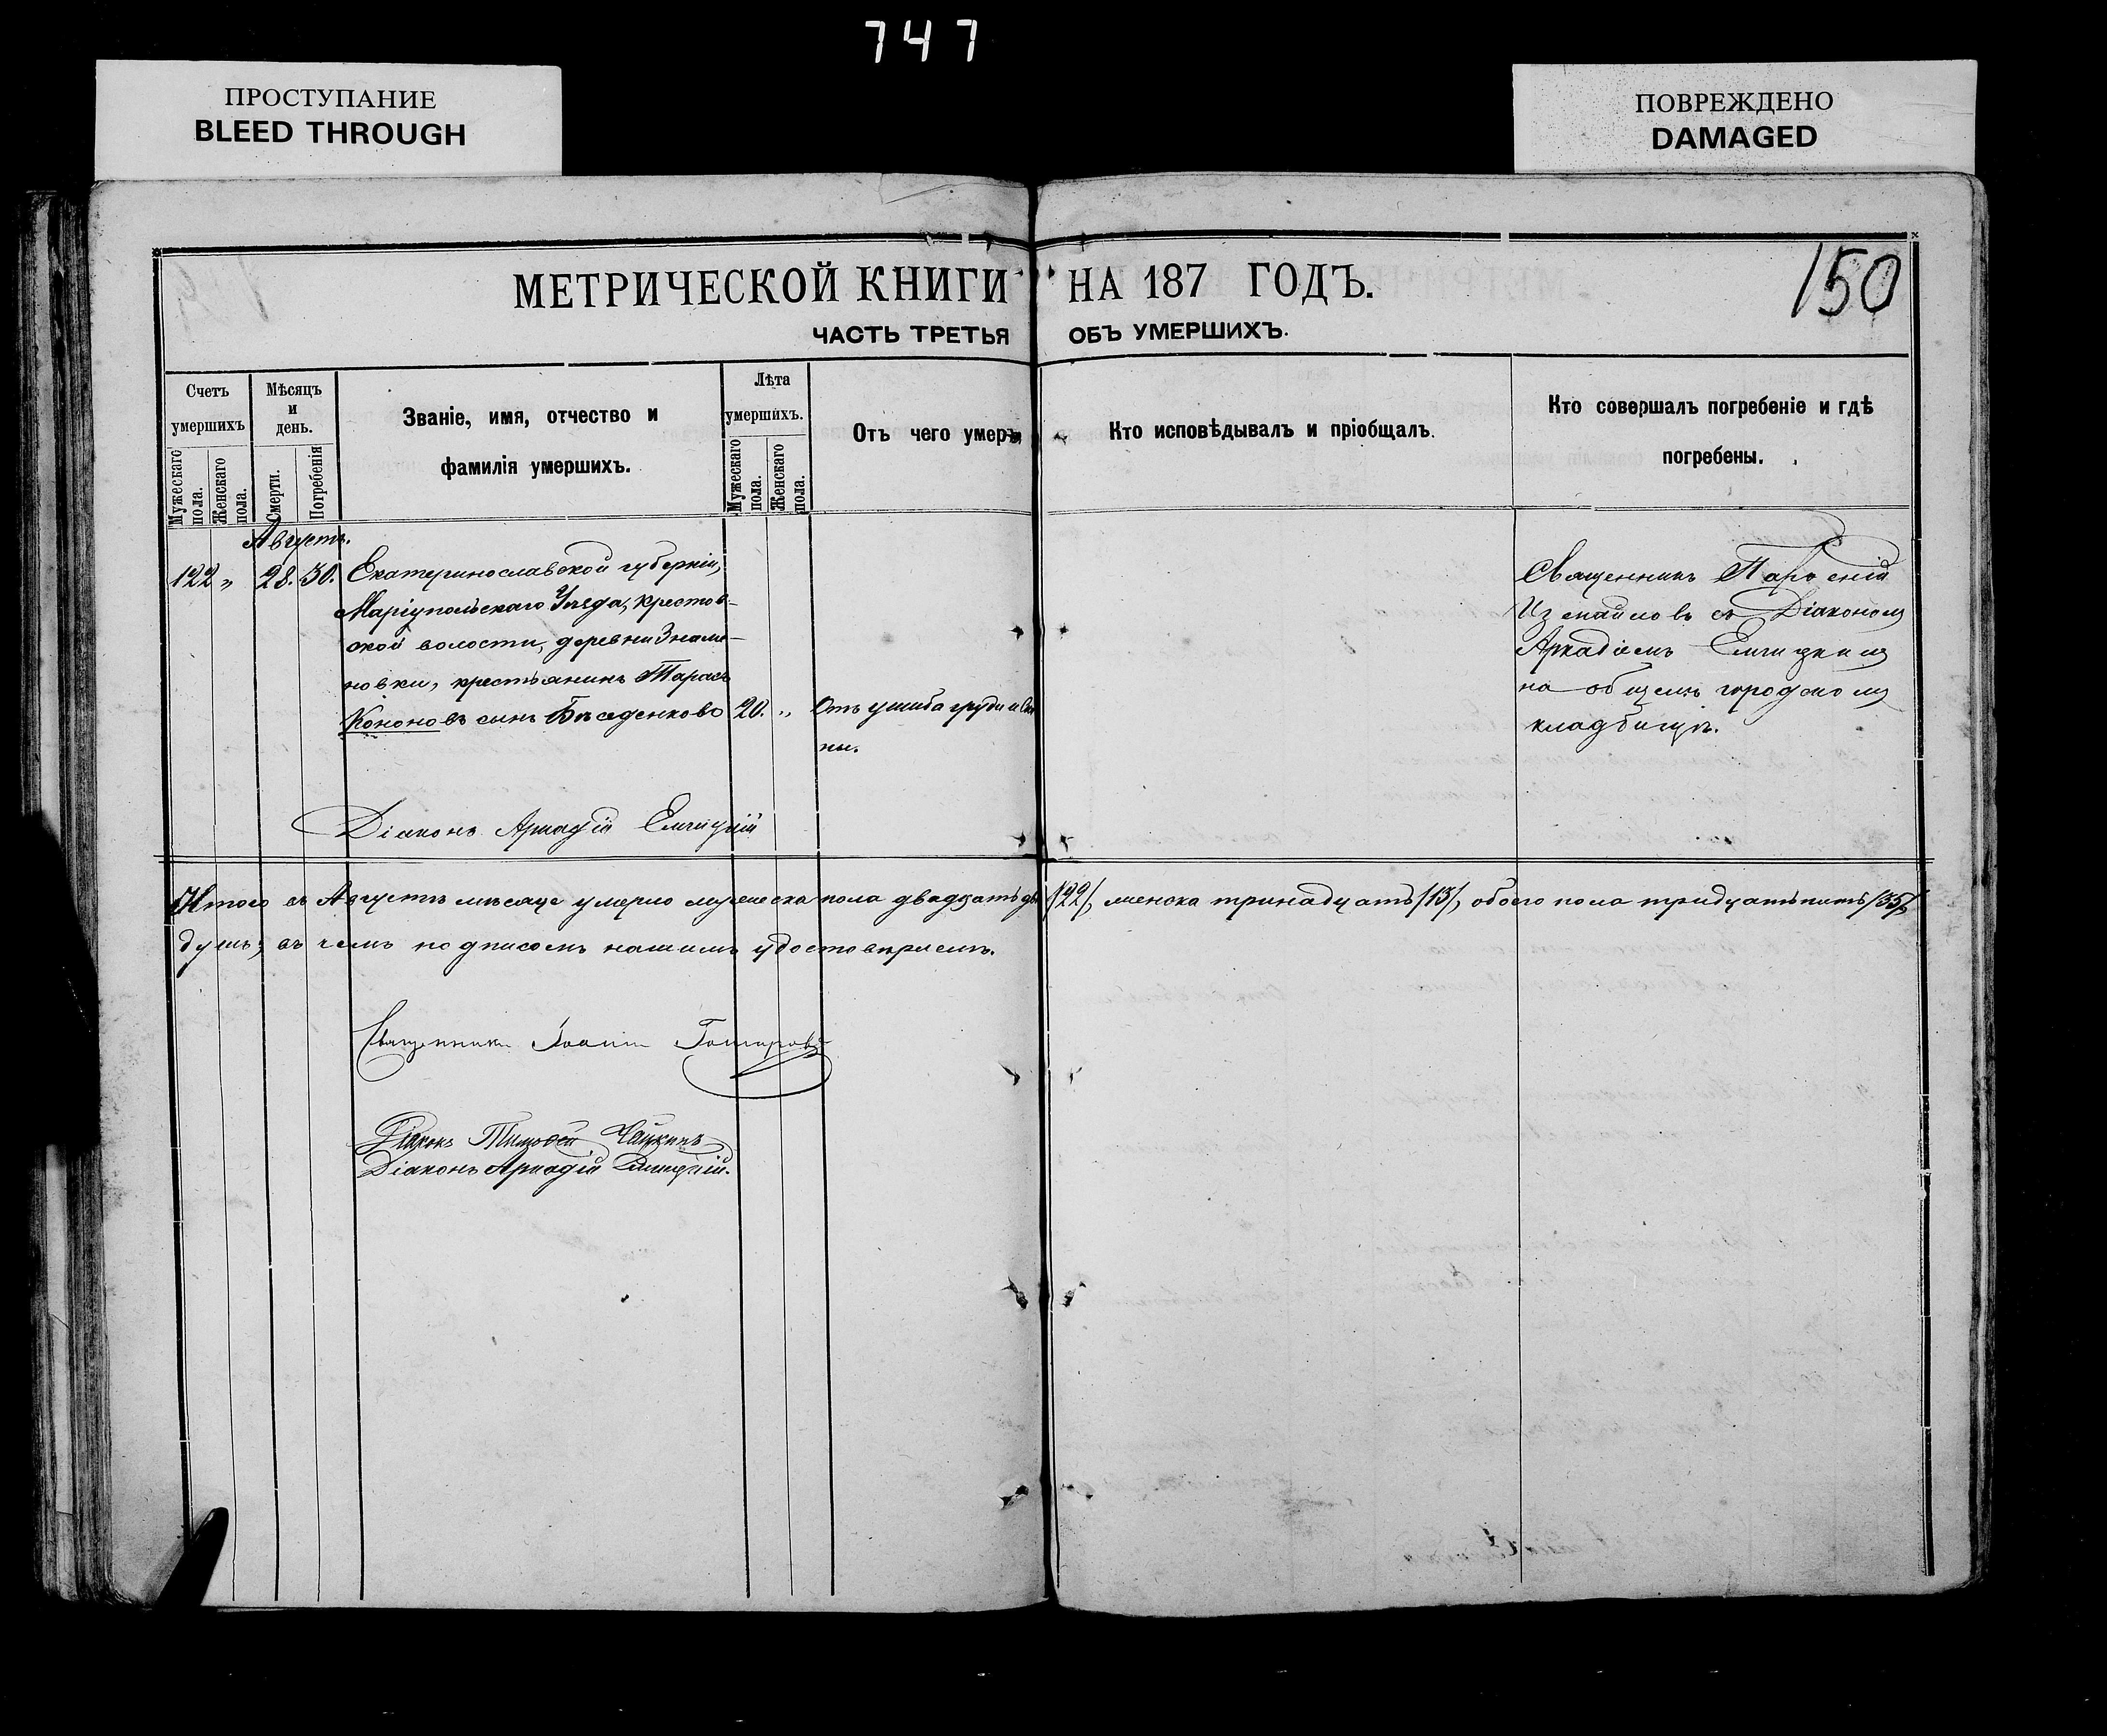 747
ПРОСТУПАНИЕ
BLEED THROUGH
ПОВРЕЖДЕНО
DAMAGED
150
МЕТРИЧЕСКОЙ КНИГИ НА 187 ГОДЪ.
ЧАСТЬ ТРЕТЬЯ ОБЪ УМЕРШИХЪ.
Счетъ умершихъ
Мужескаго пола.
Женскаго пола.
Мѣсяцъ и день.
Смерти.
Погребенія
Званіе, имя, отчество и
фамилія умершихъ.
Лѣта умершихъ.
Мужескаго пола.
Женскаго пола.
Отъ чего умеръ
Кто исповѣдывалъ и пріобщалъ.
Кто совершалъ погребеніе и гдѣ
погребены.
Августъ.
122 „ 28. 30.
Екатеринославской губерніи,
Маріупольскаго Уѣзда, Крестов-
ской волости, деревни Знаме-
новки, крестьянинъ Тарасъ
Кононовъ сынъ Бѣседенково
20. „
Отъ ушиба груди и спи
ны.
Священникъ Парѳеній
Измайловъ съ Діакономъ
Аркадіемъ
на общемъ городскомъ
кладбищѣ.
Діаконъ Аркадій
Итого въ Августѣ мѣсяцѣ умерло мужеска пола двадцать два /22/, женска тринадцать /13/, обоего пола тридцать пять /35/
душъ; въ чемъ подписомъ нашимъ удостовѣряемъ.
Священникъ Іоаннъ
Діаконъ Тимоѳей
Діаконъ Аркадій